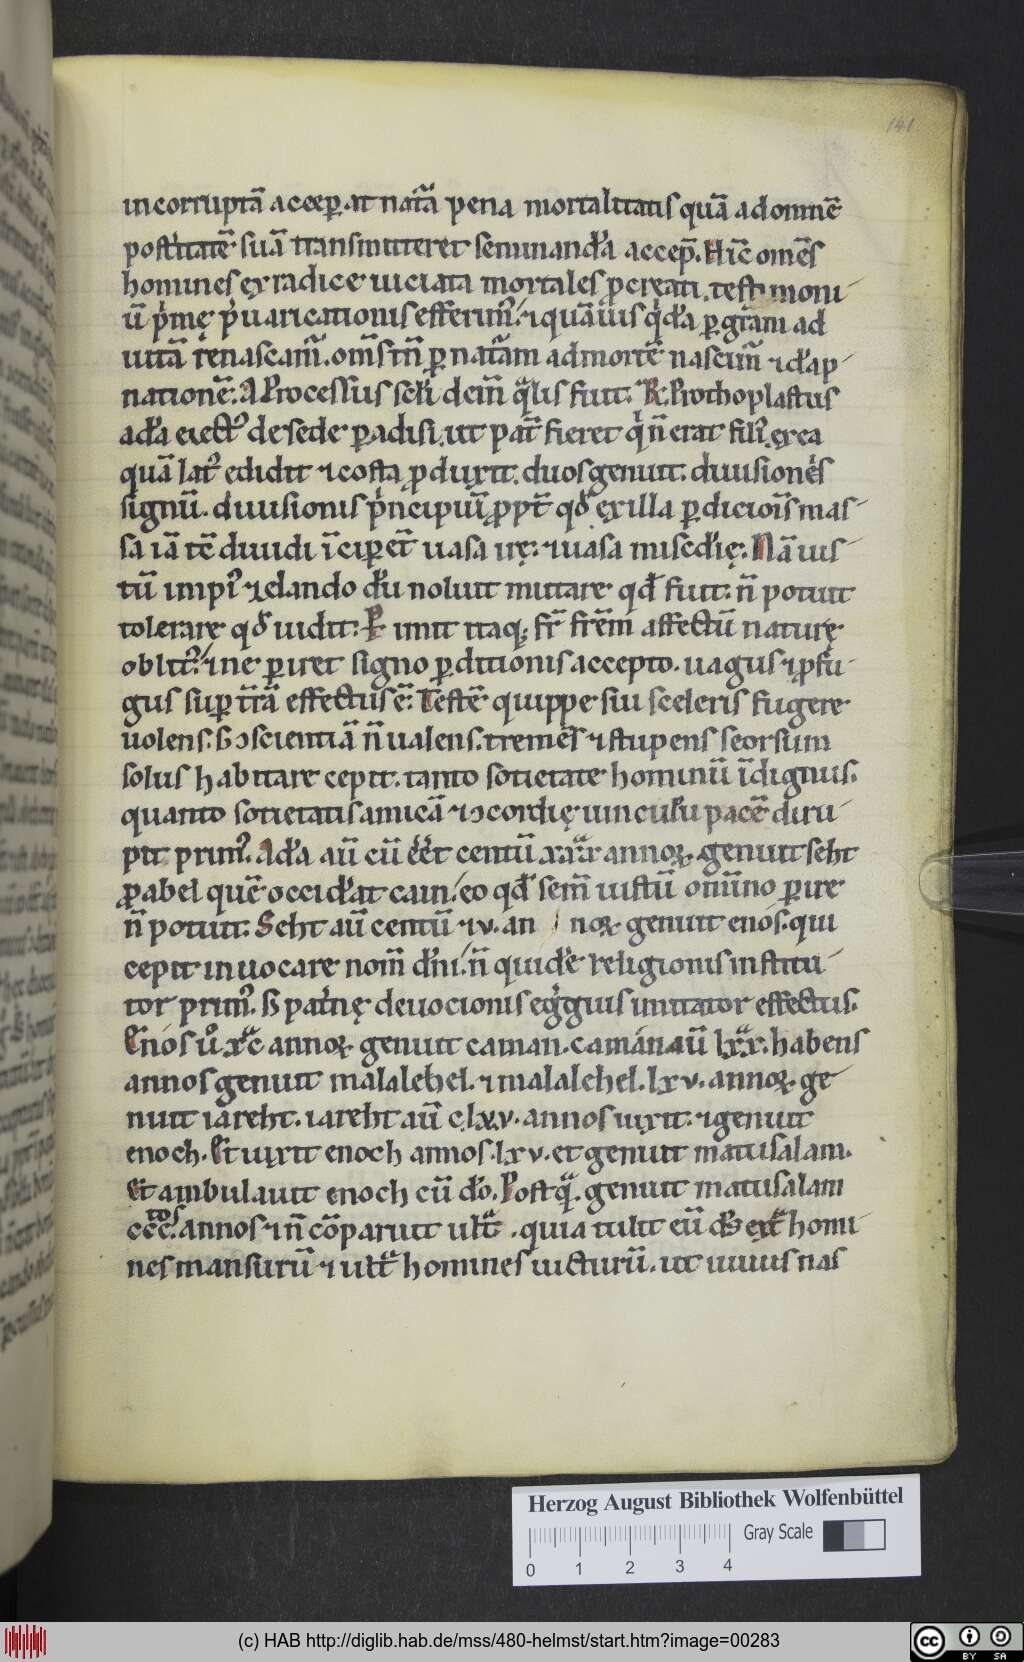 141
incorruptā acceꝑat natā pena mortalitatis quā ad omnē
post'itatē suā transmitteret seminand'a accep̄. Hīc om̄es
homines ex radice uiciata mortales ꝓcreati. testimoni
ū p'mę p'uaricationis efferim᷒. ⁊ quāuis q'd'a ꝑ gr̄am ad
uitā renascam̄. om̄s tn̄ ꝑ nat'am ad mortē nascim̄ ⁊ d'ap
nationē. Processus scl'i dem̄ q'lis fuit. Prothoplastus
ad'a eiect᷒ de sede ꝑadisi. ut pat̄ fieret q' n̄ erat filī. ex ea
quā lat᷒ edidit ⁊ costa ꝓduxit. duos genuit. diuisiones
signū. diuisionis p'ncipiū ꝓpt̄ qd' ex illa ꝑdiciōis mas
sa iā tē diuidi īciꝑet̄ uasa irę. ⁊ uasa mis'cd'ię. Nā uis
tū impī ⁊ elando d'u noluit mutare qd' fuit. n̄ potuit
tolerare qd' uidit. P imit itaq; fr̄ fr̄em affectū naturę
oblit᷒. ⁊ ne ꝑiret signo ꝑditionis accepto. uagus ⁊ ꝓfu
gus suꝑ t̄rā effectus ē. Testē quippe sui sceleris fugere
uolens. s; ↄscientiā n̄ ualens. tremēs ⁊ stupens seorsum
solus habitare cepit. tanto sotietate hominū īdignus.
quanto sotietatis amicā ⁊ ↄcordię uinculū pacē diru
pit prim᷒. Ad'a aū cū ēēt centū xxx annoꝝ genuit seht
ꝓ abel quē occid'at cain. eo qd' sem̄ iustū omnino ꝑire
n̄ potuit. Seht aū centū ⁊ v. an noꝝ genuit enos. qui
cepit inuocare nom̄ d'ni. n̄ quidē religionis institu
tor prim᷒. s; pat'nę deuocionis eg'gius imitator effectus.
Enos ů xc annoꝝ genuit cainan. cainan aū lxx. habens
annos genuit malalehel. ⁊ malalehel. lxv. annoꝝ ge
nuit iareht. iareht aū clxv. annos uixit. ⁊ genuit
enoch. Et uixit enoch annos. lxv. et genuit matusalam.
Et ambulauit enoch cū d'o. Postq̄ genuit matusalam
ccc. tos annos ⁊ n̄ cōparuit ult̄. quia tulit eū d's ext̄ homi
nes mansurū ⁊ ult̄ homines uicturū. ut uiuus nas
Herzog August Bibliothek Wolfenbüttel
Gray Scale
0 1 2 3 4
(c) HAB http://diglib.hab.de/mss/480-helmst/start.htm?image=00283
cc BY SA